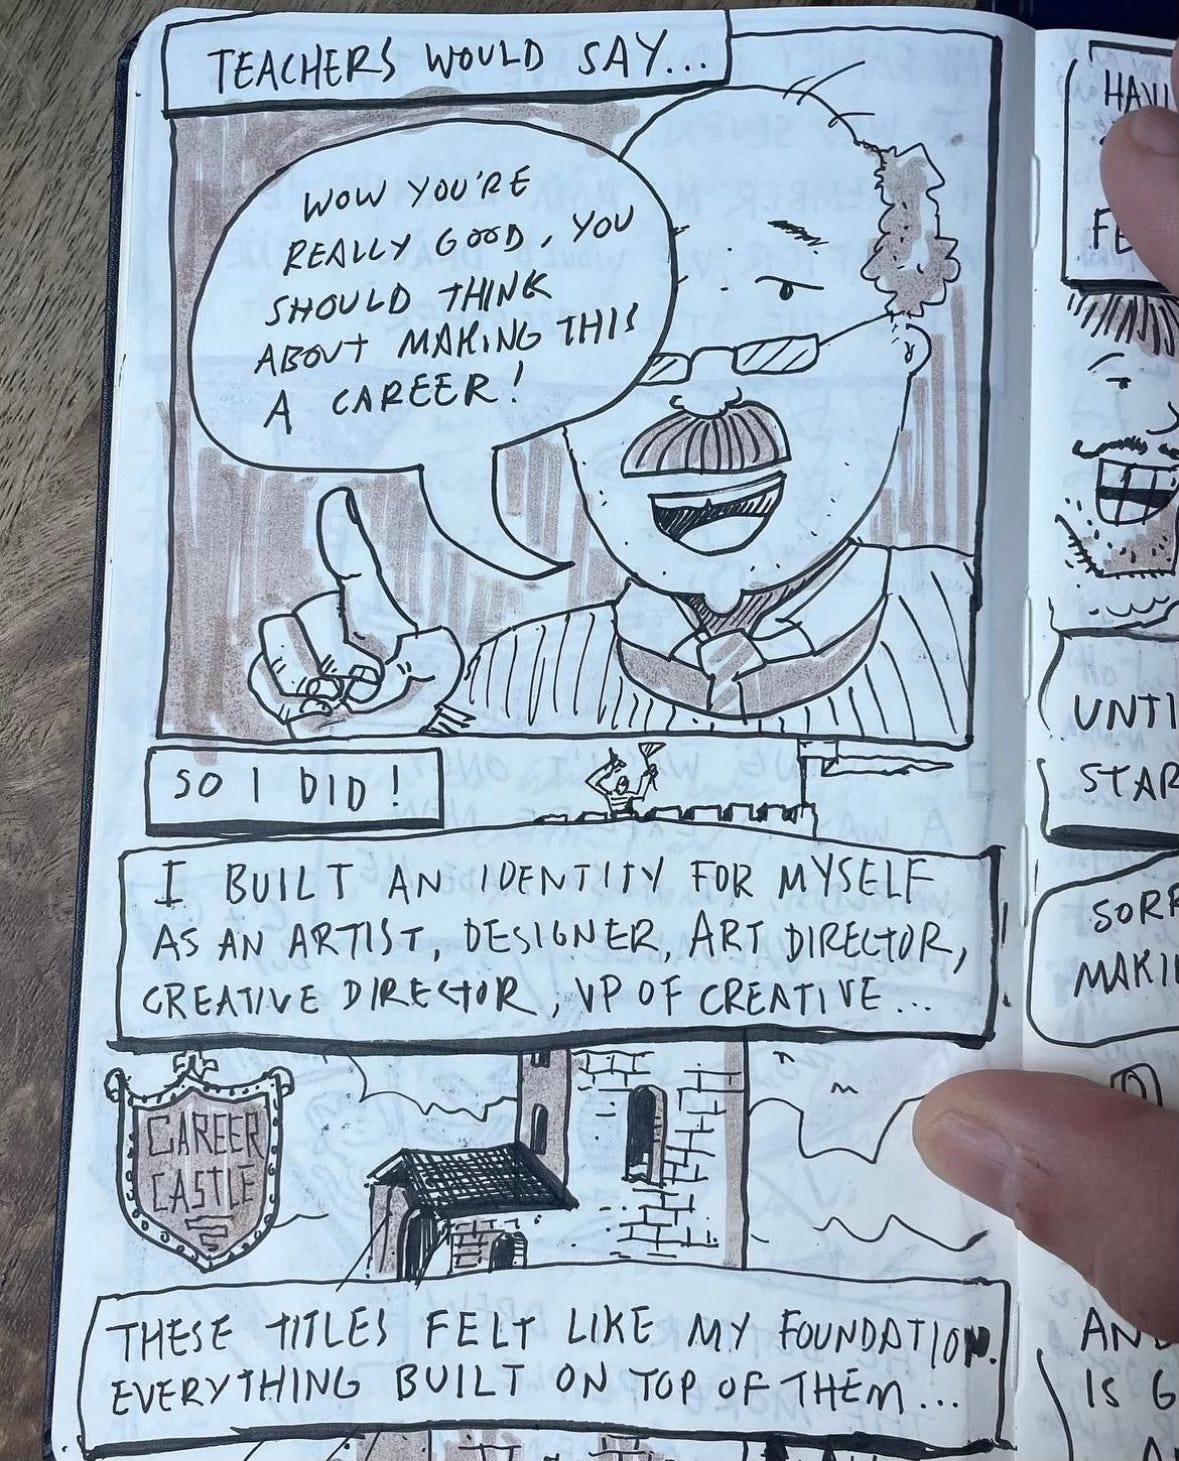 TEACHERS WOULD SAY...
WOW YOU'RE
REALLY GOOD, YOU
SHOULD THINK
ABOUT MAKING THIS
A CAREER!
SO I DID!
I BUILT AN IDENTITY FOR MYSELF
AS AN ARTIST, DESIGNER, ART DIRECTOR,
CREATIVE DIRECTOR, VP OF CREATIVE...
CAREER
CASTLE
THESE TITLES FELT LIKE MY FOUNDATION.
EVERYTHING BUILT ON TOP OF THEM...
IS